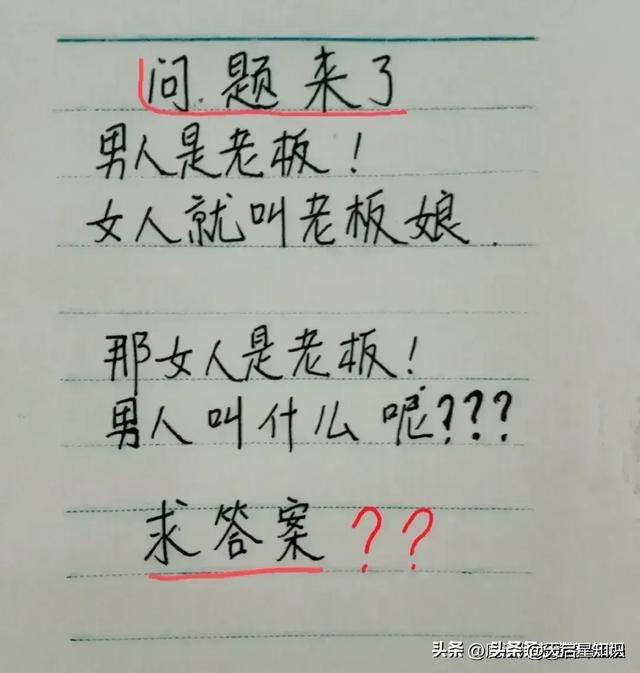 问.题来了
男人是老板！
女人就叫老板娘.
那女人是老板！
男人叫什么呢???
求答案??